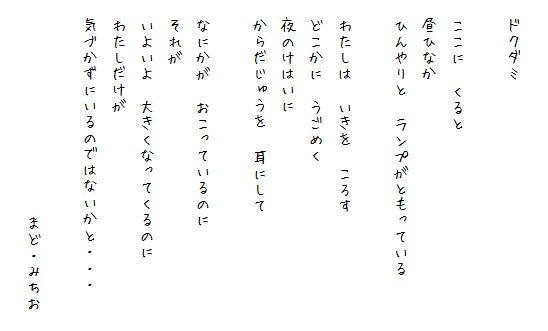 ドクダミ
ここに　くると
昼ひなか
ひんやりと　ランプがともっている
わたしは　いきを　ころす
どこかに　うごめく
夜のけはいに
からだじゅうを　耳にして
なにかが　おこっているのに
それが
いよいよ　大きくなってくるのに
わたしだけが
気づかずにいるのではないかと・・・
まど・みちお